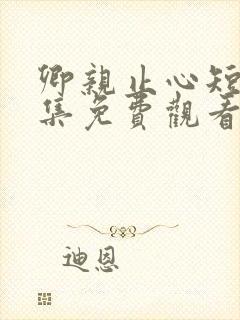 卿親止心短
集免費觀看
迪恩